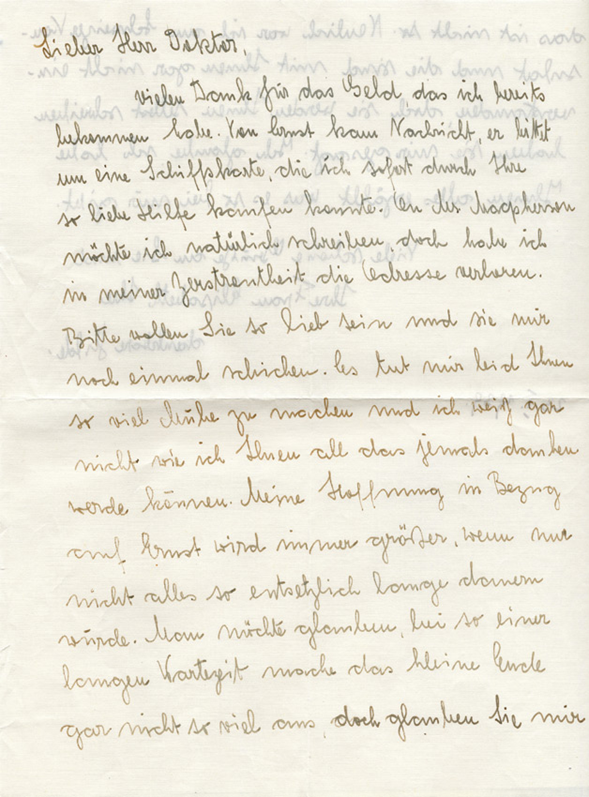 Lieber Herr Doktor,
vielen Dank für das Geld, das ich bereits
bekommen habe. Von Ernst kam Nachricht, er bittet
um eine Schiffskarte, die ich sofort durch Ihre
so liebe Hilfe kaufen konnte. An des Macpherson
möchte ich natürlich schreiben doch habe ich
in meiner Zerstreutheit die Adresse verloren.
Bitte wollen Sie so lieb sein und sie mir
noch einmal schicken. Es tut mir leid Ihnen
so viel Mühe zu machen und ich weiß gar
nicht wie ich Ihnen all das jemals danken
werde können. Meine Hoffnung in Bezug
auf Ernst wird immer größer, wenn nur
nicht alles so entsetzlich lange dauern
würde. Man möchte glauben, bei so einer
langen Wartezeit mache das kleine Ende
gar nicht so viel aus, doch glauben Sie mir